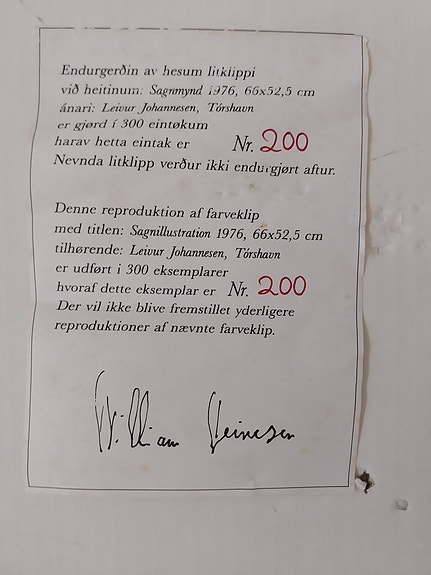 Endurgerðin av hesum litklippi
við heitinum: Sagnmynd 1976, 66x52,5 cm
ánari: Leivur Johannesen, Tórshavn
er gjørd í 300 eintøkum
harav hetta eintak er Nr. 200
Nevnda litklipp verður ikki endurgjørt aftur.
Denne reproduktion af farveklip
med titlen: Sagnillustration 1976, 66x52,5 cm
tilhørende: Leivur Johannesen, Tórshavn
er udført i 300 eksemplarer
hvoraf dette eksemplar er Nr. 200
Der vil ikke blive fremstillet yderligere
reproduktioner af nævnte farveklip.
William Heinesen